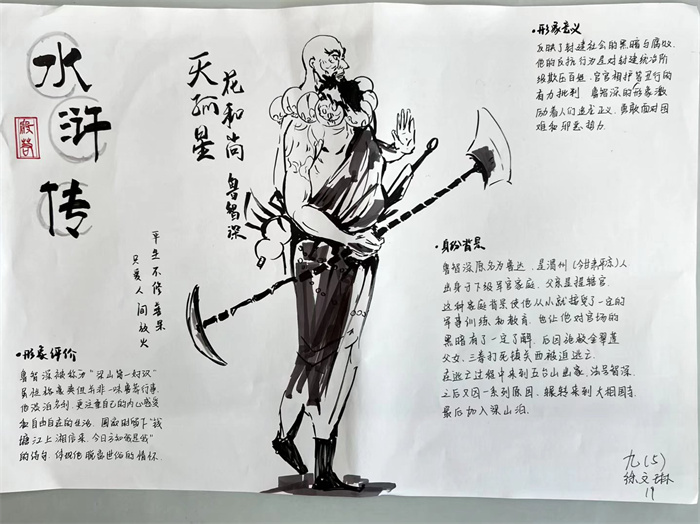 水浒传
天孤星
花和尚
鲁智深
平生不修善果
只爱人间放火
·形象意义
反映了封建社会的黑暗与腐败.
他的反抗行为是对封建统治阶
级欺压百姓、官官相护等恶行的
有力批判 鲁智深的形象激
励着人们追求正义、勇敢面对困
难和邪恶势力.
·身份背景
鲁智深原名为鲁达,是渭州(今甘肃平凉)人
出身于下级军官家庭,父亲是提辖官.
这种家庭背景使他从小就接受了一定的
军事训练和教育,也让他对官场的
黑暗有了一定了解.后因施救金翠莲
父女,三拳打死镇关西被迫逃亡.
在逃亡过程中来到五台山出家,法号智深.
之后又因一系列原因,辗转来到大相国寺
最后加入梁山泊.
·形象评价
鲁智深被称为“梁山第一好汉”
虽性格鲁莽但并非一味鲁莽行事.
他淡泊名利,更注重自己的内心感受
和自由自在的生活.圆寂时留下“钱
塘江上潮信来,今日方知我是我”
的诗句,体现他脱离世俗的情怀.
九(5)
徐文琳
19